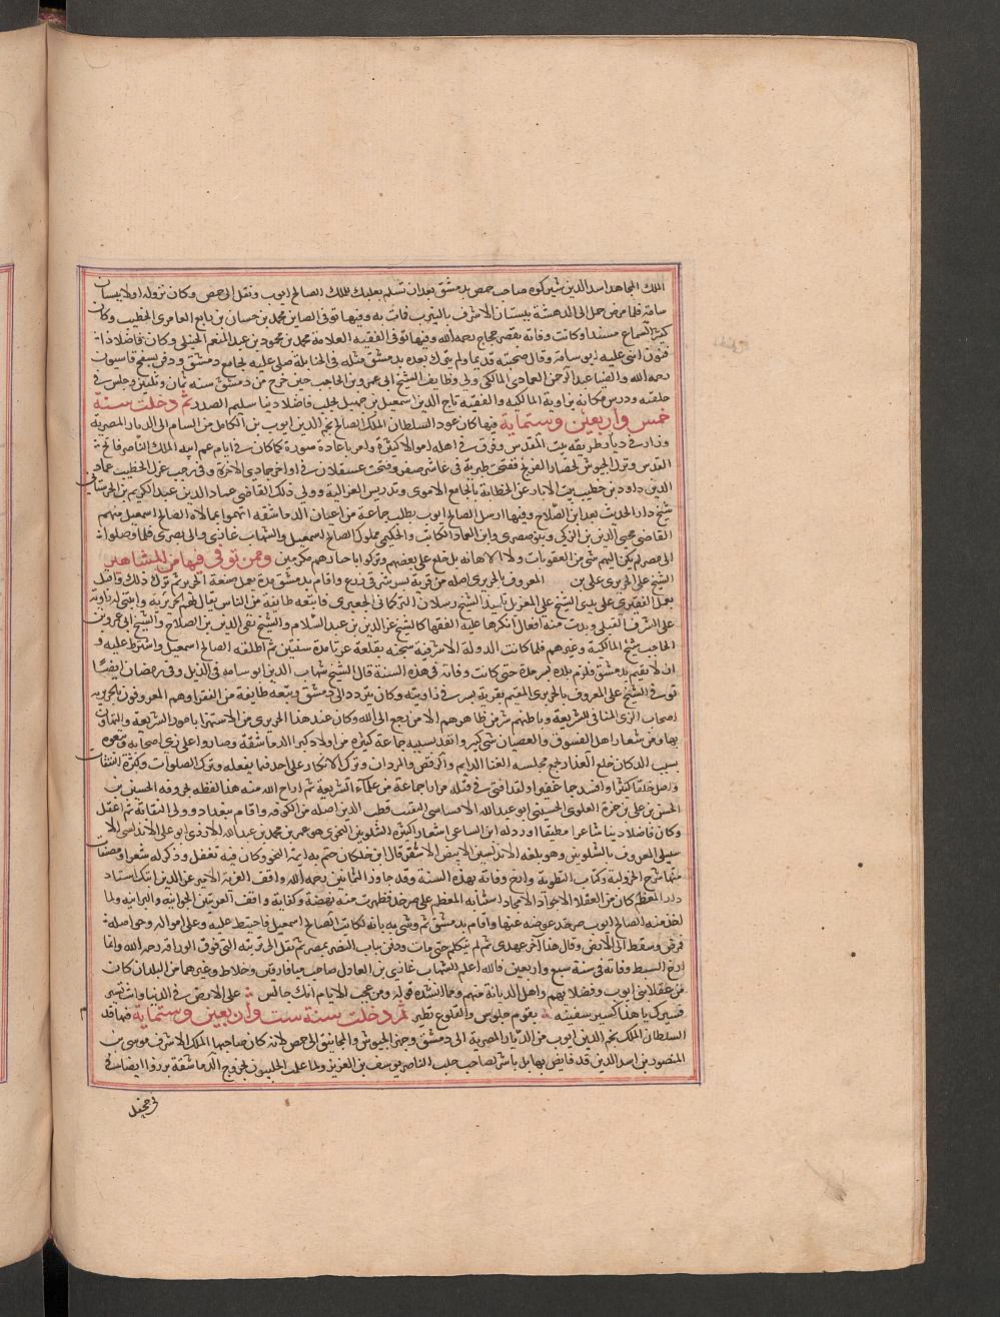 الملك المجاهد اسد الدين شيركوه صاحب حمص بدمشق بعد ان تسلم بعلبك للملك الصالح ايوب ونقل الى حمص وكان نزوله اولا ببستان
سامة فلما مرض حمل الى الدهشة ببستان الاشرف بالنيرب فمات به وفيها توفى الصاين محمد بن حسان بن رافع العامرى الخطيب وكان
كثير السماع مسندا وكانت وفاته بقصر حجاج رحمه الله وفيها توفى الفقيه العلامة محمد بن محمود بن عبد المنعم الحنبلى وكان فاضلا ذا
فنون اثنى عليه ابو سامة وقال صحبته قديما ولم يترك بعده بدمشق مثله فى الحنابلة صلى عليه بجامع دمشق ودفن بسفح قاسيون
رحمه الله والضيا عبد الرحمن الغمادى المالكى ولى وظايف الشيخ ابى عمرو بن الحاجب حين خرج من دمشق سنه ثمان وثلثين وجلس فى
حلقته ودرس مكانه بزاوية المالكيه والفقيه تاج الدين اسمعيل بن جميل بحلب فاضلا دينا سليم الصدر ثم دخلت سنة
خمس واربعين وستماية فيها كان عود السلطان الملك الصالح نجم الدين ايوب بن الكامل من الشام الى الديار المصرية
وزار فى طريقه بيت المقدس وفرق فى اهله اموالا كثيرة وامر باعادة سورة كما كان فى ايام عم ابيه الملك الناصر فاتح
القدس ونزل الجيوش لحصار الفرنج ففتحت طبرية فى عاشر صفر وفتحت عسقلان فى اواخر جمادى الاخرة وفى رجب عزل الخطيب عماد
الدين داود بن خطيب بيت الابار عن الخطابة بالجامع الاموى وتدريس الغزالية وولى ذلك القاضى عماد الدين عبد الكريم بن الحرستانى
شيخ دار الحديث بعد ابن الصلاح وفيها ارسل الصالح ايوب يطلب جماعة من اعيان الدماشقه اتهموا بممالاة الصالح اسمعيل منهم
القاضى محيى الدين بن الزكى وبنو صصرى وابن العماد الكاتب والحليمى مملوك الصالح اسمعيل والشهاب غازى والى بصرى فلما وصلوا
الى مصر لم يكن اليهم شى من العقوبات ولا الاهانه بل خلع على بعضهم وتركوا باختيارهم مكرمين وممن توفى فيها من المشاهير
الشيخ على الحريرى على بن المعروف بالحريرى اصله من قرية بسر شرقى زرع واقام بدمشق مدة يعمل صنعة الحرير ثم ترك ذلك واقبل
يعمل الفقيرى على يدى الشيخ على المغربل تلميذ الشيخ رسلان التركمانى الجعبرى فاتبعه طايفة من الناس يقال لهم الحريرية وابتنى له زاوية
على الشرف القبلى وبدت منه افعال انكرها عليه الفقها كالشيخ عز الدين بن عبد السلام والشيخ تقى الدين بن الصلاح والشيخ ابى عمرو بن
الحاجب شيخ المالكية وغيرهم فلما كانت الدولة الاشرفية سجنه بقلعة عزتا مدة سنتين ثم اطلقه الصالح اسمعيل واشترط عليه
ان لا يقيم بدمشق فلزم بلده بسر مدة حتى كانت وفاته فى هذه السنة قال الشيخ شهاب الدين ابو سامه فى الذيل وفى رمضان ايضا
توفى الشيخ على المعروف بالحريرى المقيم بقرية بسر فى زاويته وكان يتردد الى دمشق وتبعه طايفة من الفقرا وهم المعروفون بالحريرية
اصحاب الزى المنافى للشريعة وباطنهم شر من ظاهرهم الا من رجع الى الله وكان عند هذا الحريرى من الاستهزا بامور الشريعة والتهاون
بها ومن شعار اهل الفسوق والعصيان شى كبير وانفسد بسببه جماعة كثيرة من اولاد كبرا الدماشقة وصاروا على زى اصحابه وتبعوه
بسبب انه كان خليع العذار يجمع مجلسه الغنا الدايم والرقص والمردان وترك الانكار على احد فيما يفعله وترك الصلوات وكثرة النفقات
واضل خلقا كثيرا وافسد جما غفيرا ولقد افتى فى قتله مرارا جماعة من علماء الشريعة ثم اراح الله منه هذا لفظه بحروفه الحسين بن
الحسن بن على بن حمزة العلوى الحسينى ابو عبد الله الاقساسى النقيب قطب الدين اصله من الكوفه واقام ببغداد وولى النقابة ثم اعتقل
وكان فاضلا دينا شاعرا مطيقا اورد له ابن الساعى اشعارا كثيرة الشلوبين النحوى هو عمر بن محمد بن عبد الله الازدى ابو على الاندلسى الا
سبيلى المعروف بالشلوبين وهو بلغة الاندلسين الابيض الاشقر قال ابن خلكان ختم به ايمة النحو وكان فيه تغفل وذكر له شعرا ومصنفات
منها شرح الجزولية وكتاب التوطية وارخ وفاته بهذه السنة وقد جاوز الثمانين رحمه الله واقف العزية الامير عز الدين ايبك استاد
دار المعظم كان من العقلا الاجواد الامجاد استنابه المعظم على صرخد فظهرت منه نهضة وكفاية واقف العزيتين الجوانية والبرانية ولما
اخذ منه الصالح ايوب صرخد عوضه عنها واقام بدمشق ثم وشى به بانه يكاتب الصالح اسمعيل فاحتيط عليه وعلى امواله وحواصله
فمرض وسقط الى الارض وقال هذا آخر عهدى ثم لم يتكلم حتى مات ودفن بباب النصر بمصر ثم نقل الى تربته التى فوق الوراقة رحمه الله وانما
ارخ السبط وفاته فى سنة سبع واربعين فالله اعلم الشهاب غازى بن العادل صاحب ميافارقين وخلاط وغيرهما من البلدان كان
من عقلا بنى ايوب وفضلايهم واهل الديانة منهم ومما انشده قوله ومن عجب الايام انك جالس على الارض فى الدنيا وانت تسير
فسيرك يا هذا كسير سفينة بقوم جلوس والقلوع تطير ثم دخلت سنة ست واربعين وستماية فيها قدم
السلطان الملك نجم الدين ايوب من الديار المصرية الى دمشق وجهز الجيوش والمجانيق الى حمص لانه كان صاحبها الملك الاشرف موسى بن
المنصور بن اسد الدين قد قايض بها بتل باشر لصاحب حلب الناصر يوسف بن العزيز ولما علمت الحلبيون بخروج الدماشقة برزوا ايضا فى
فى جحفل